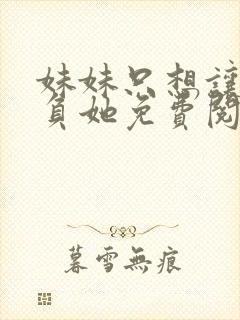 妹妹只想讓
負她免費閱
暮雪無痕